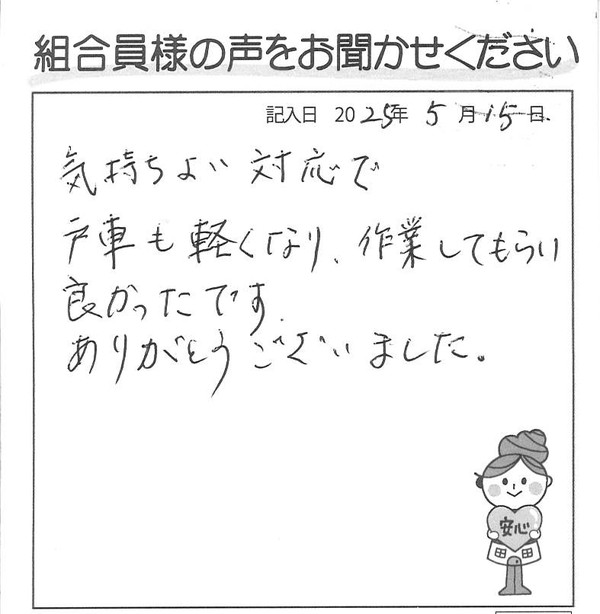 組合員様の声をお聞かせください
記入日 2025年 5月15日
気持ちよい対応で
戸車も軽くなり、作業してもらい
良かったです
ありがとうございました。
安心